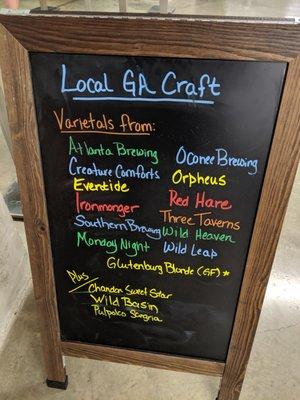 Local GA Craft
Varietals from:
Atlanta Brewing
Creature Comforts
Eventide
Ironmonger
Southern Brewing
Monday Night
Oconee Brewing
Orpheus
Red Hare
Three Taverns
Wild Heaven
Wild Leap
Glutenburg Blonde (GF) *
Plus
Chandon Sweet Star
Wild Basin
Pulpoloco Sangria